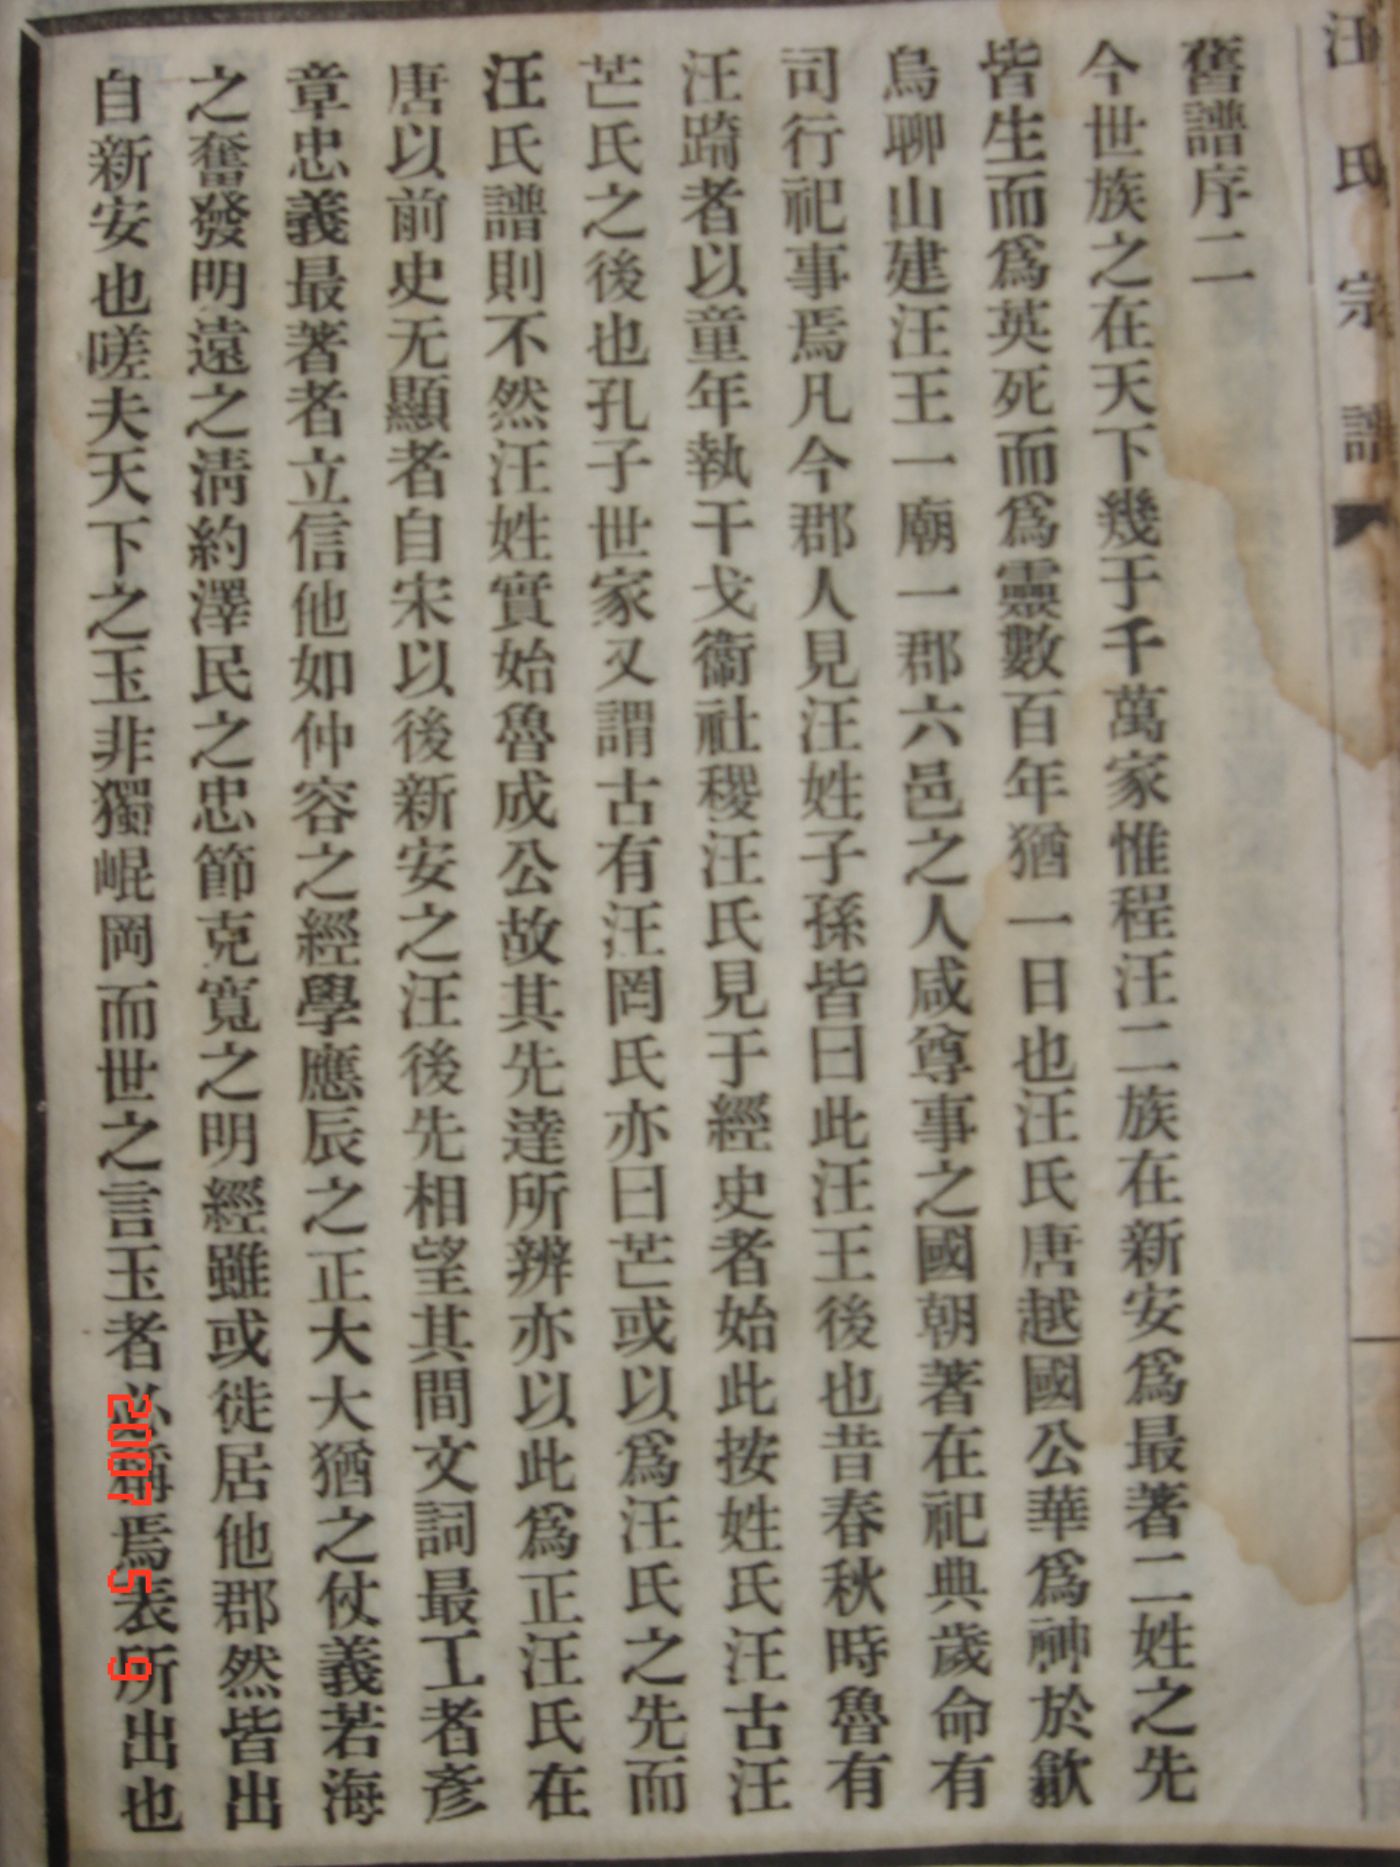 汪氏宗譜
舊譜序二
今世族之在天下幾于千萬家惟程汪二族在新安爲最著二姓之先
皆生而爲英死而爲靈數百年猶一日也汪氏唐越國公華爲神於歙
烏聊山建汪王一廟一郡六邑之人咸尊事之國朝著在祀典歲命有
司行祀事焉凡今郡人見汪姓子孫皆曰此汪王後也昔春秋時魯有
汪踦者以童年執干戈衞社稷汪氏見于經史者始此按姓氏汪古汪
芒氏之後也孔子世家又謂古有汪罔氏亦曰芒或以爲汪氏之先而
汪氏譜則不然汪姓實始魯成公故其先達所辨亦以此爲正汪氏在
唐以前史无顯者自宋以後新安之汪後先相望其間文詞最工者彥
章忠義最著者立信他如仲容之經學應辰之正大大猶之仗義若海
之奮發明遠之淸約澤民之忠節克寬之明經雖或徙居他郡然皆出
自新安也嗟夫天下之玉非獨崐岡而世之言玉者必稱焉表所出也
2007 5 9